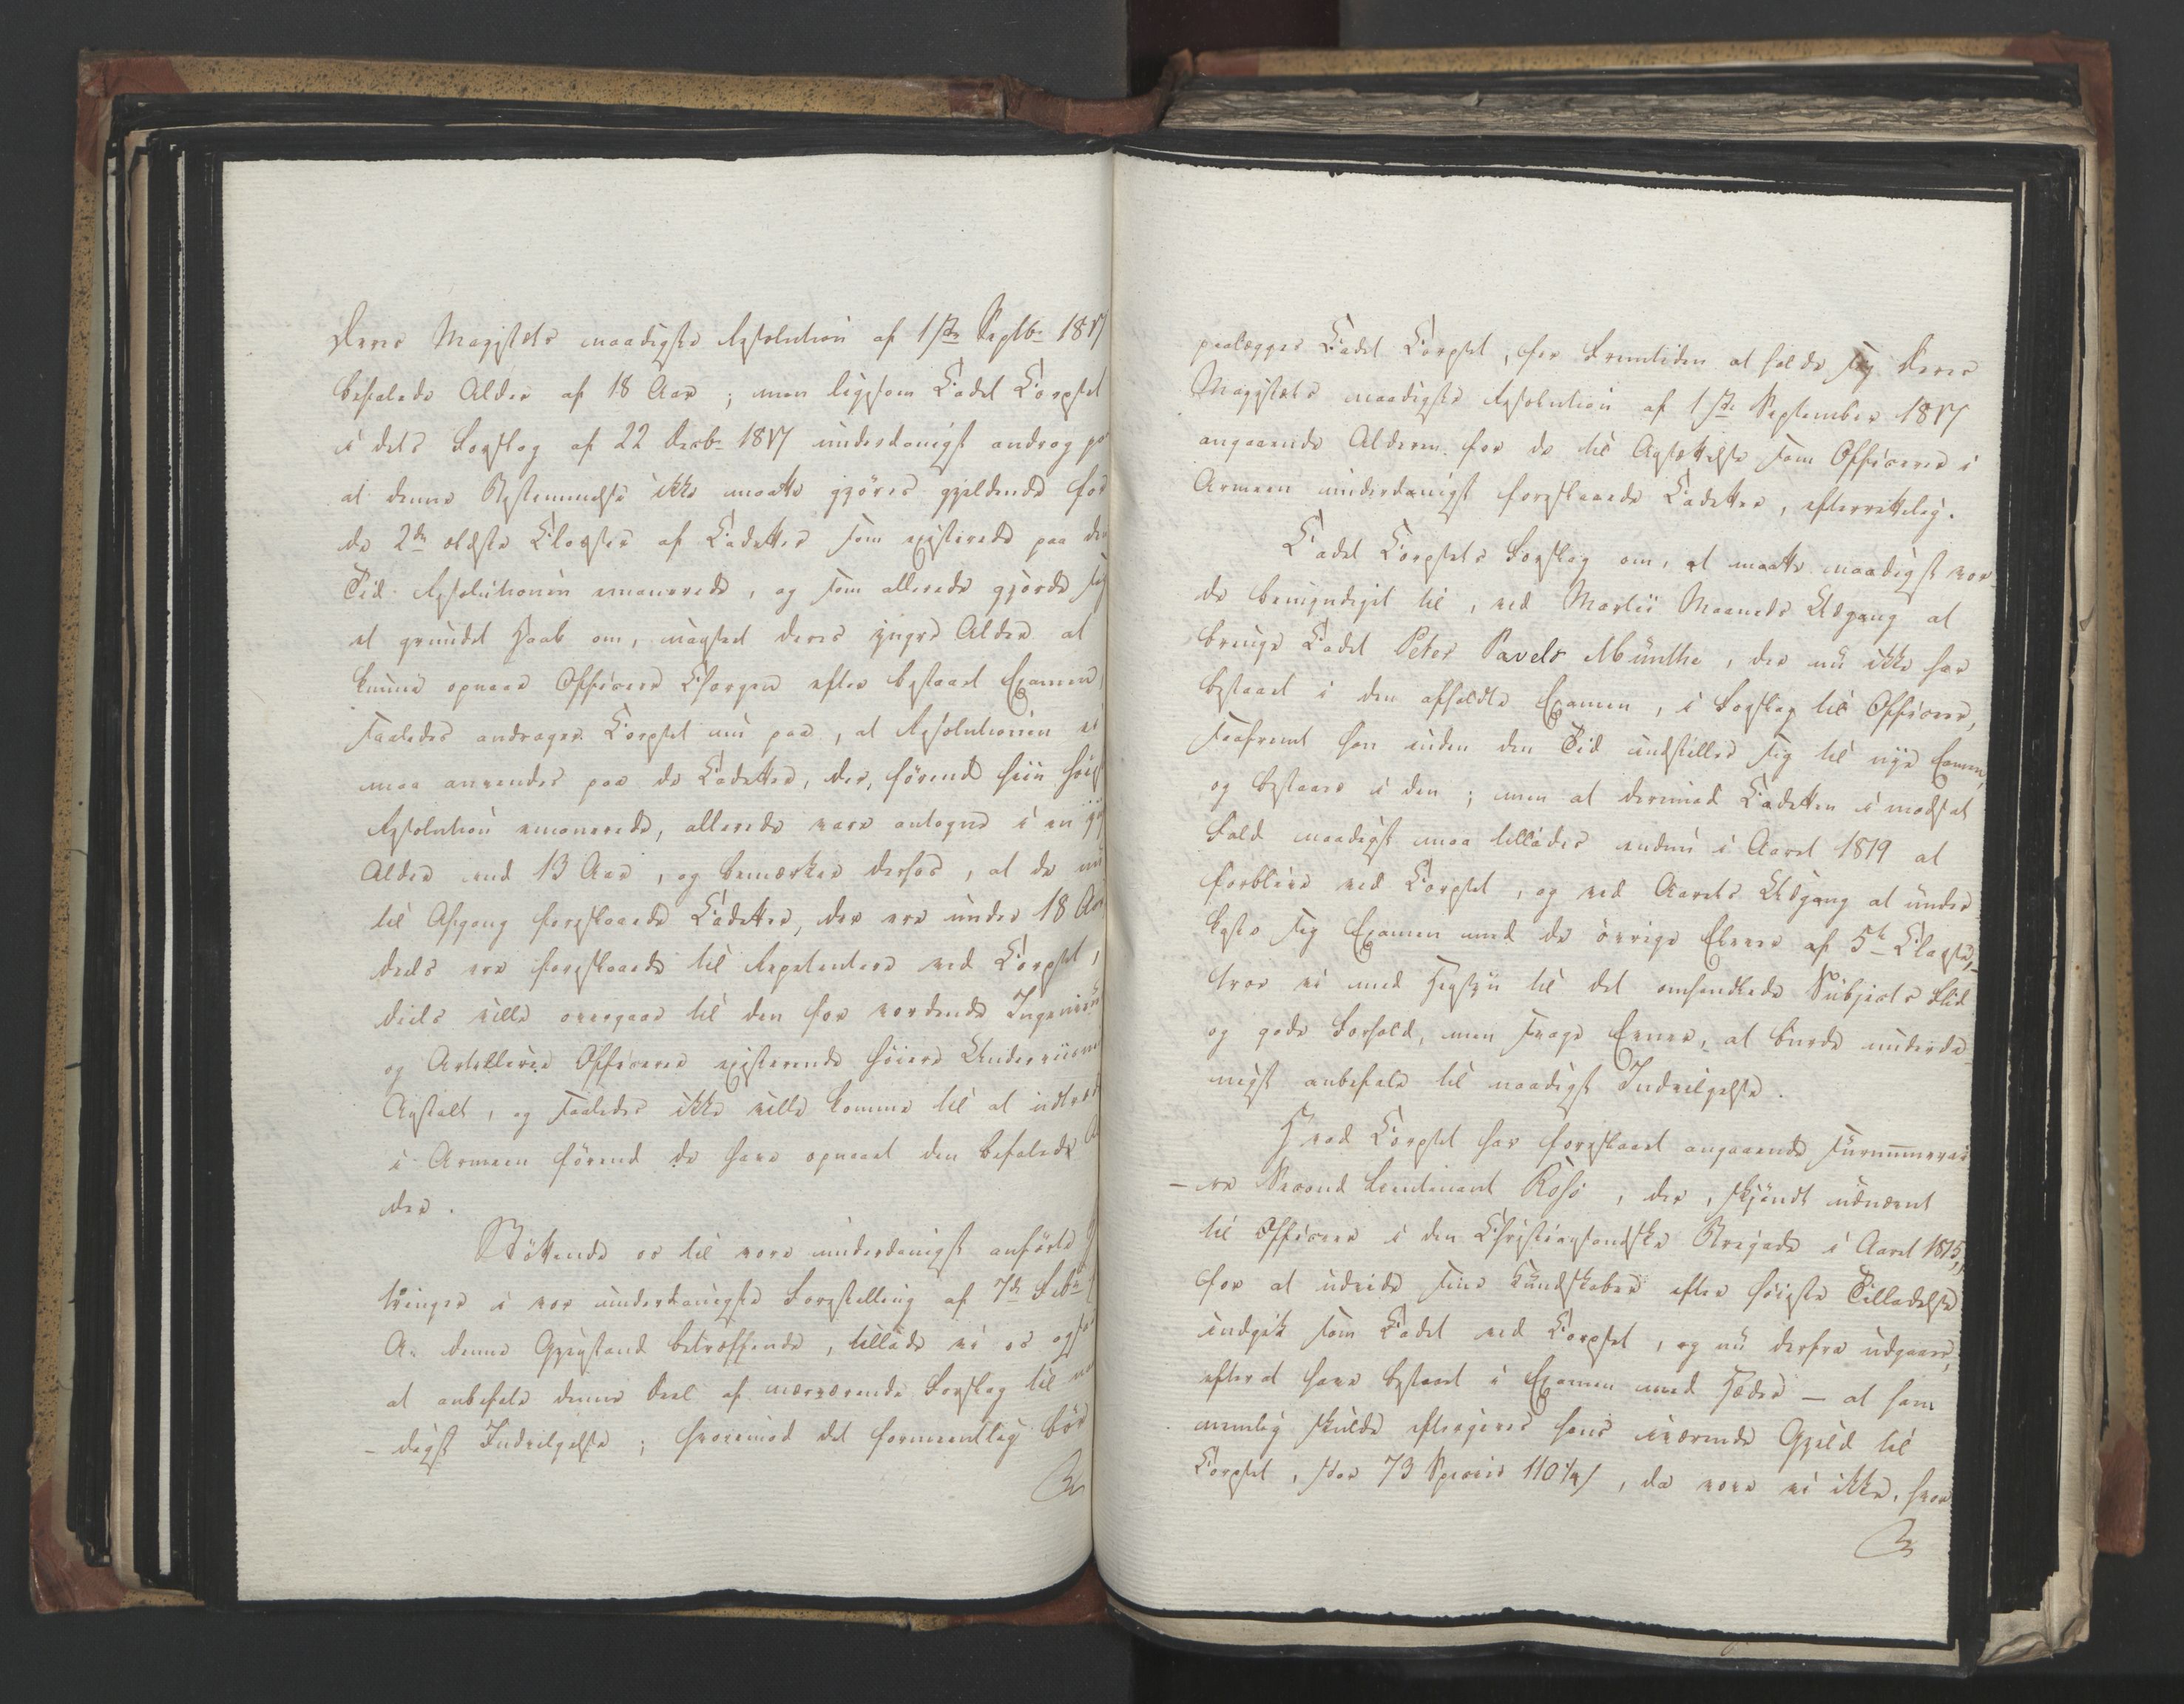 Deres Majestets naadigste Resolution af 1ste Septbr 1817
befalede Alder af 18 Aar; men ligesom Cadet Corpset
i dets Forslag af 22 Decbr 1817 underdanigst androg paa
at denne Bestemmelse ikke maatte gjöres gjeldende for
de 2de ældste Classer af Cadetter som existerede paa den
Tid Resolutionen emanerede, og som allerede gjorde sig
et grundet Haab om, uagtet deres yngre Alder at
kunne opnaae Officers Chargen efter bestaaet Examen,
saaledes andrager Corpset nu paa, at Resolutionen ei
maa anvendes paa de Cadetter, der, förend hiin höie
Resolution emanerede, allerede vare antagne i en
Alder end 13 Aar, og bemærker derhos, at de nu
til Afgang foreslaaede Cadetter, der ere under 18 Aar
deels ere foreslaaede til Repetentere ved Corpset,
deels ville overgaae til den for vordende Ingenieur
og Artillerie Officerer existerende höiere Underviisnings
Anstalt, og saaledes ikke ville komme til at indtræde
i Armeen förend de have opnaaet den befalede Al
der.
Stöttende os til vore underdanigst anförte
tringer i vor underdanigste Forestilling af 7de Febr
A: denne Gjenstand betræffende, tillade vi os ogsaa
at anbefale denne Deel af nærværende Forslag til naa
- digst Indvilgelse; hvorimod det formeentlig bör
paalægges Cadet Corpset, for Fremtiden at holde sig Deres
Majestæts naadigste Resolution af 1ste September 1817
angaaende Alderen for de til Ansættelse som Officerer i
Armeen underdanigst foreslaaede Cadetter, efterrettelig.
Cadet Corpsets Forslag om, at maatte naadigst vor
de bemyndiget til, ved Martii Maaneds Udgang at
bringe Cadet Peter Pavels Münthe, der nu ikke har
bestaaet i den afholdte Examen, i Forslag til Officeer,
saafremt han inden den Tid indstiller sig til nye Examen,
og bestaaer i den; men at derimod Cadetten i modsat
Fald naadigst maa tillades endnu i Aaret 1819 at
forblive ved Corpset, og ved Aarets Udgang at under
kaste sig Examen med de övrige Elever af 5te Classe,-
troe vi med Hensyn til det omhandlede Subjects Flid
og gode Forhold, men svage Evner, at burde underda
nigst anbefale til naadigst Indvilgelse.
Hvad Corpset har foreslaaet angaaende surnumerai
- re Second Lieutenant Rosé, der, skjöndt udnævnt
til Officeer i den Christiansandske Brigade i Aaret 1815,
for at udvide sine Kundskaber efter höieste Tilladelse
indgik som Cadet ved Corpset, og nu derfra udgaaer,
efterat have bestaaet i Examen med Hæder — at ham
nemlig skulde eftergives hans værende Gjeld til
Corpset, stor 73 Species 110¼ s, da vove vi ikke, hvor